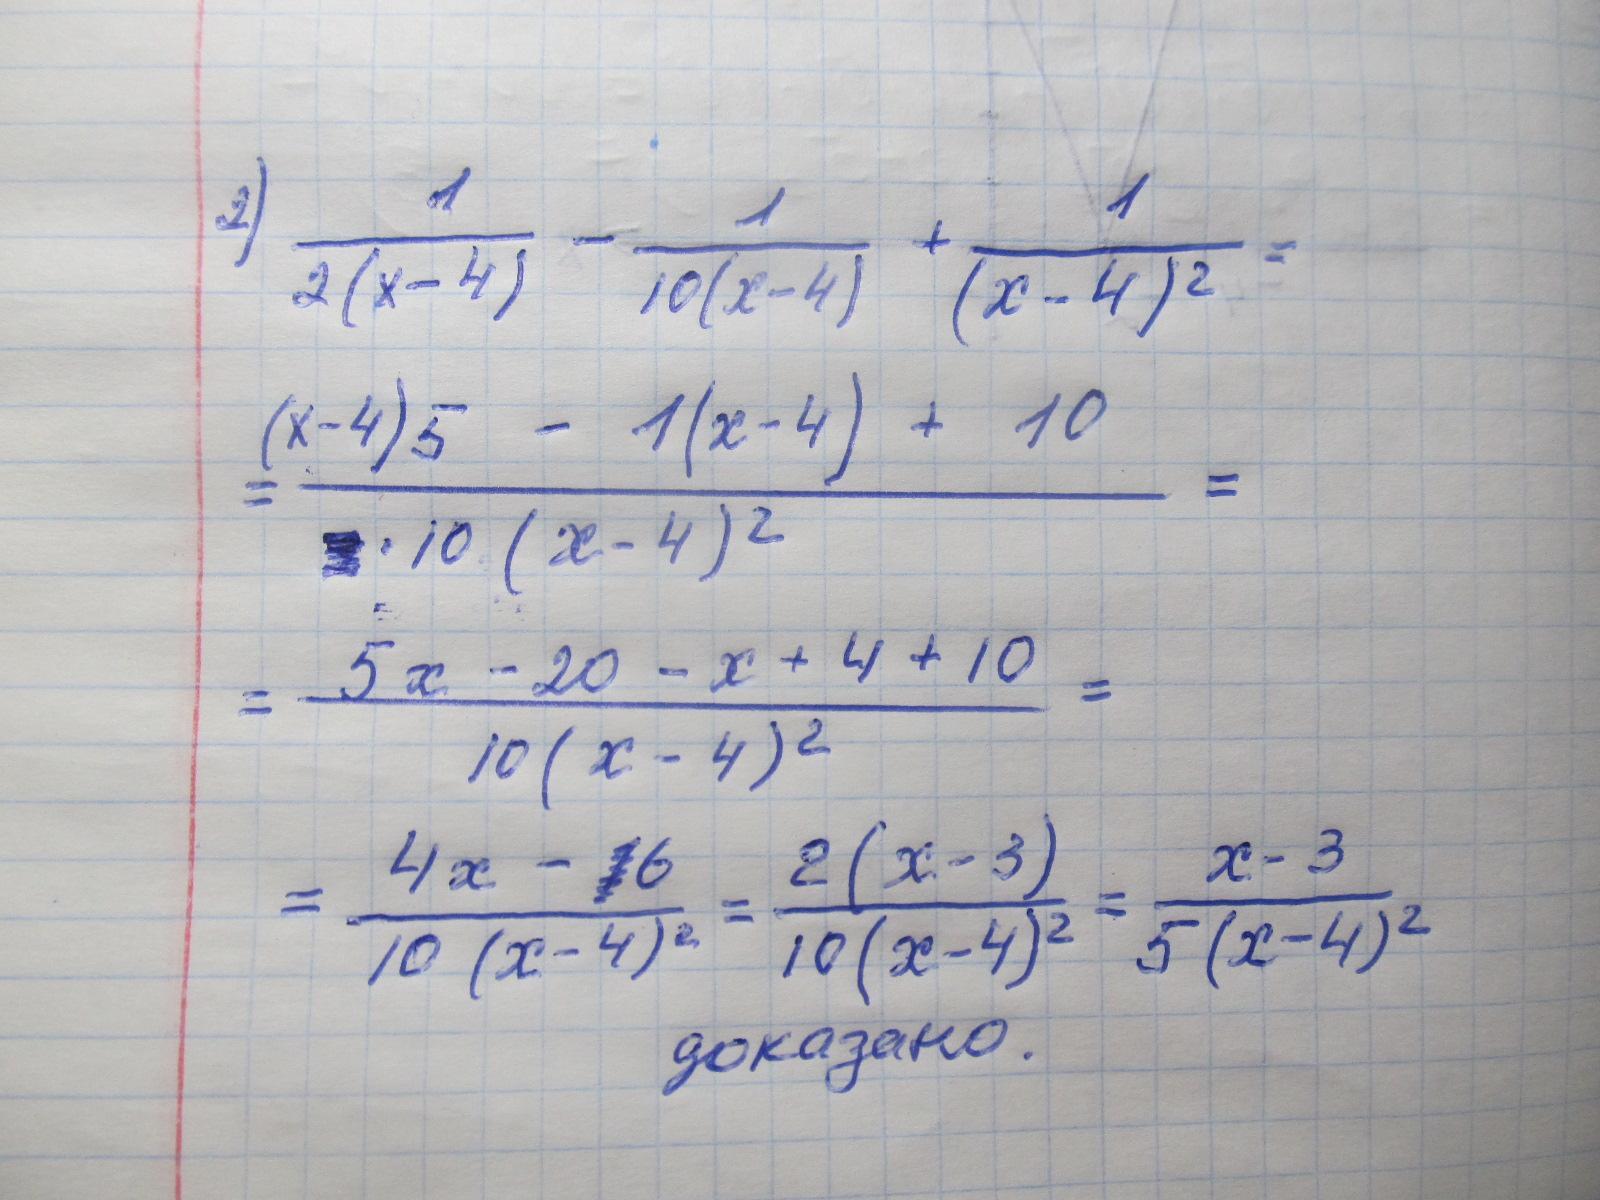 2) 1/(2(x-4)) - 1/(10(x-4)) + 1/(x-4)² =
= ((x-4)5 - 1(x-4) + 10)/(· 10(x-4)²) =
= (5x - 20 - x + 4 + 10)/(10(x-4)²) =
= (4x - 6)/(10(x-4)²) = (2(x-3))/(10(x-4)²) = (x-3)/(5(x-4)²)
доказано.